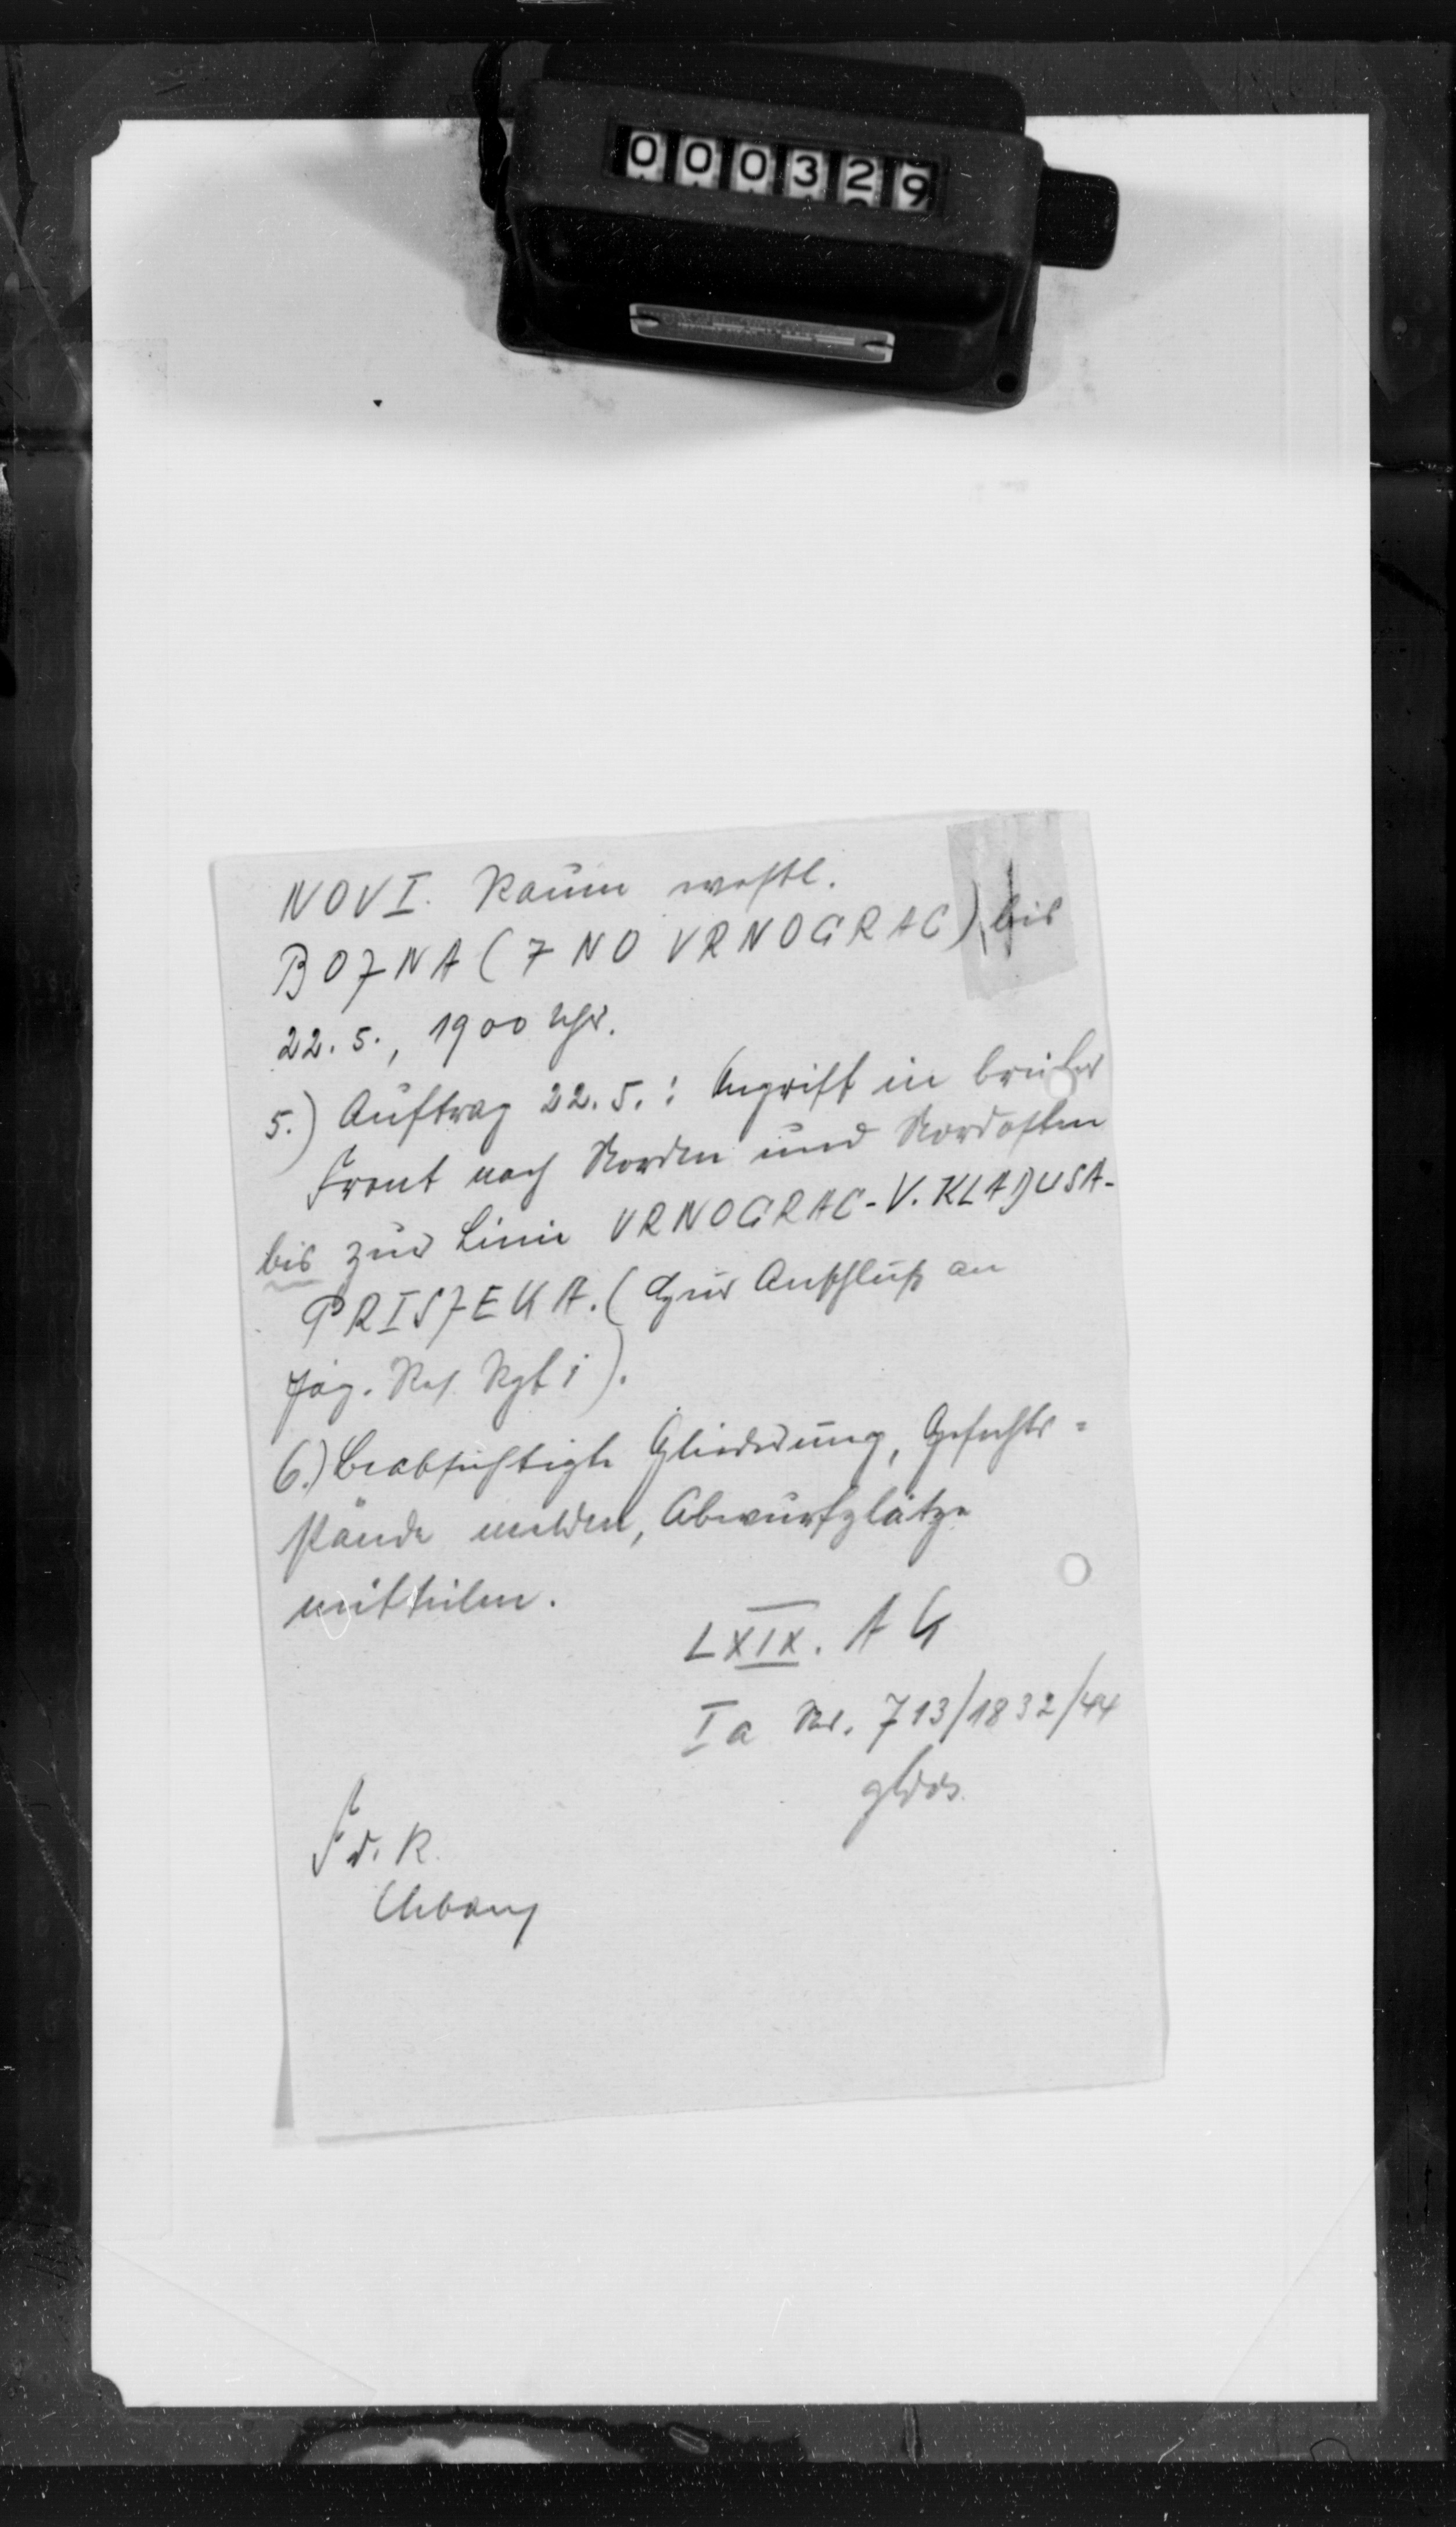 000329
NOVI. Raum westl.
BOJNA (7 NO VRNOGRAC) bis
22.5., 1900 Uhr.
5.) Auftrag 22.5.: Angriff in breiter
Front nach Norden und Nordosten
bis zur Linie VRNOGRAC - V. KLADUSA -
PRISJEKA. (Hier Anschluß an
Jäg. Res. Rgt 1).
6.) Beabsichtigte Gliederung, Gefechts=
stände melden, Abwurfplätze
mitteilen.
LXIX. AK
Ia Nr. 713/1832/44
gKdos.
F.d.R.